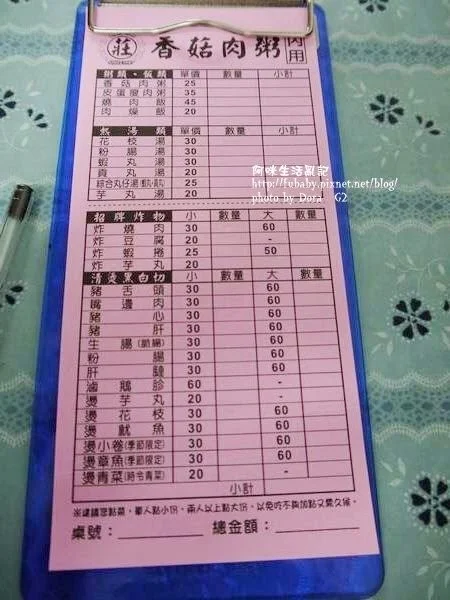 莊 香菇肉粥 內用
粥類・飯類 單價 數量 小計
香菇肉粥 25
皮蛋瘦肉粥 35
燒肉飯 45
肉燥飯 20
熱湯類 單價 數量 小計
花枝湯 30
粉腸湯 30
蝦丸湯 30
貢丸湯 30
綜合丸仔湯 25
芋丸湯 30
阿咪生活亂記
http://fubaby.pixnet.net/blog/
photo by Dora G2
招牌炸物 小 數量 大 數量
炸燒肉 30 60
炸豆腐 20 -
炸蝦捲 25 50
炸芋丸 20
清燙黑白切 小 數量 大 數量
豬舌頭 30 60
嘴邊肉 30 60
豬心 30 60
豬肝 30 60
生腸(脆腸) 30 60
粉腸 30 60
肝腱 30 60
滷鵝胗 60 -
燙芋丸 20 -
燙花枝 30 60
燙魷魚 30 60
燙小卷(季節限定) 30 60
燙章魚(季節限定) 30 60
燙青菜(時令青菜) 20 -
小計
※建議您點菜，單人點小份、兩人以上點大份，以免吃不夠加點又需久候。
桌號：＿＿＿＿ 總金額：＿＿＿＿